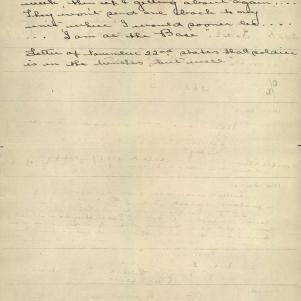 week, then up & getting about again....
They won't send me back to my
unit where I would sooner be....
... "I am at the Base"
Letter of November 22nd states that soldier
is in the trenches, but well